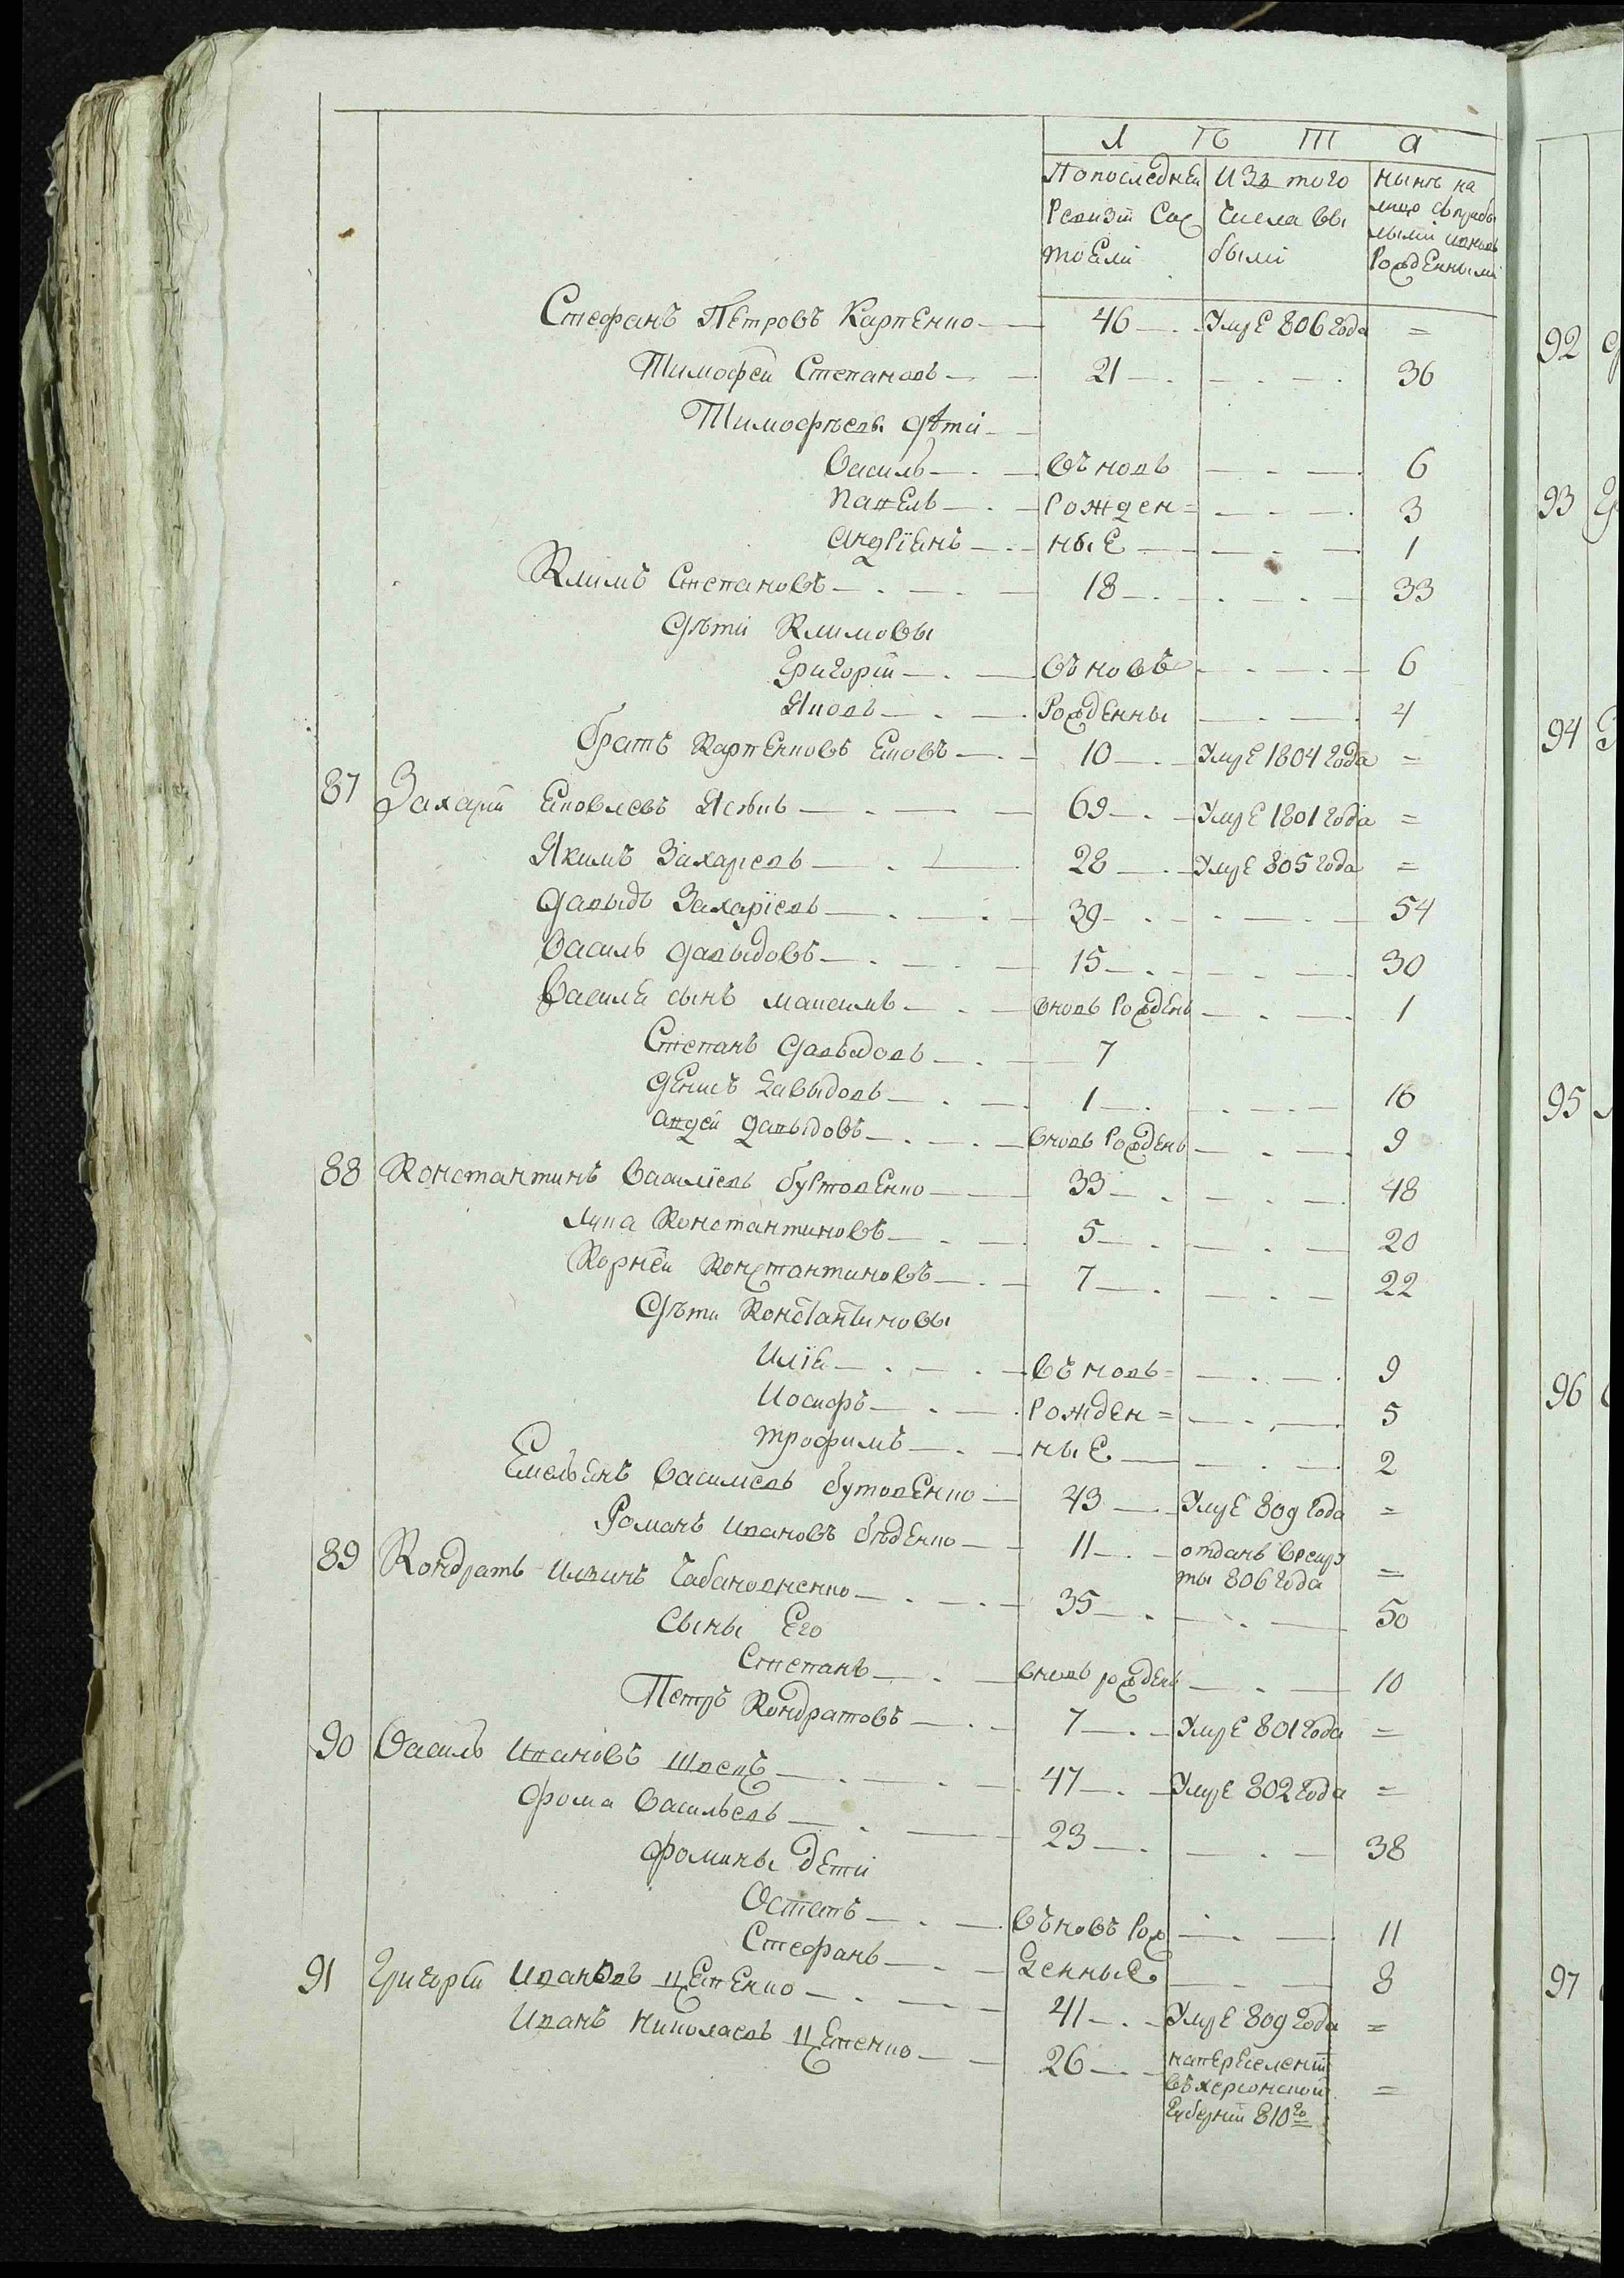 Л Ѣ Т А
По последней Ревизіи Состояли
Изъ того Числа Выбыли
Нынѣ на лицо съ прибылыми и вновь Рожденными
Стефанъ Петровъ Карпенко 46 Умре 806 Года =
Тимофей Степановъ 21 36
Тимофѣевы дѣти
Василь Въновь 6
Павелъ Рожден= 3
Андріянъ ные 1
Климъ Степановъ 18 33
Дѣти Климовы
Григорій Въновъ 6
Яковъ Рожденны 4
Братъ Карпенковъ Яковъ 10 Умре 1804 Года =
87 Захарій Яковлевъ 69 Умре 1801 Года =
Якимъ Захаріевъ 28 Умре 805 Года =
Давыдъ Захаріевъ 39 54
Василь Давыдовъ 15 30
Василя сынъ Максимъ Вновь Рожденъ 1
Степанъ Давыдовъ 7
Денисъ Давыдовъ 1 16
Андрей Давыдовъ Вновь Рожденъ 9
88 Константинъ Василіевъ 33 48
Лука Константиновъ 5 20
Корнѣй Константиновъ 7 22
Дѣти Константиновы
Илія Въновь= 9
Иосифъ Рожден= 5
Трофимъ ные 2
Емельянъ Василіевъ Бутовенко 43 Умре 809 Года =
Романъ Ивановъ 11 отданъ Врекруты 806 Года =
89 Кондратъ Илвинъ Чабановненко 35 50
Сыны Его
Степанъ Вновь рожденъ 10
Петръ Кондратовъ 7 Умре 801 Года =
90 Василь Ивановъ Швецъ 47 Умре 802 Года =
Фома Васильевъ 23 38
Фомины дети
Остапъ Въновъ Рож 11
Стефанъ денные 8
91 Григорій Ивановъ Цепенко 41 Умре 809 Года =
Иванъ Николаевъ Цепенко 26 на переселеніи
въ херсонской =
Губерніи 810го
92
93
94
95
96
97